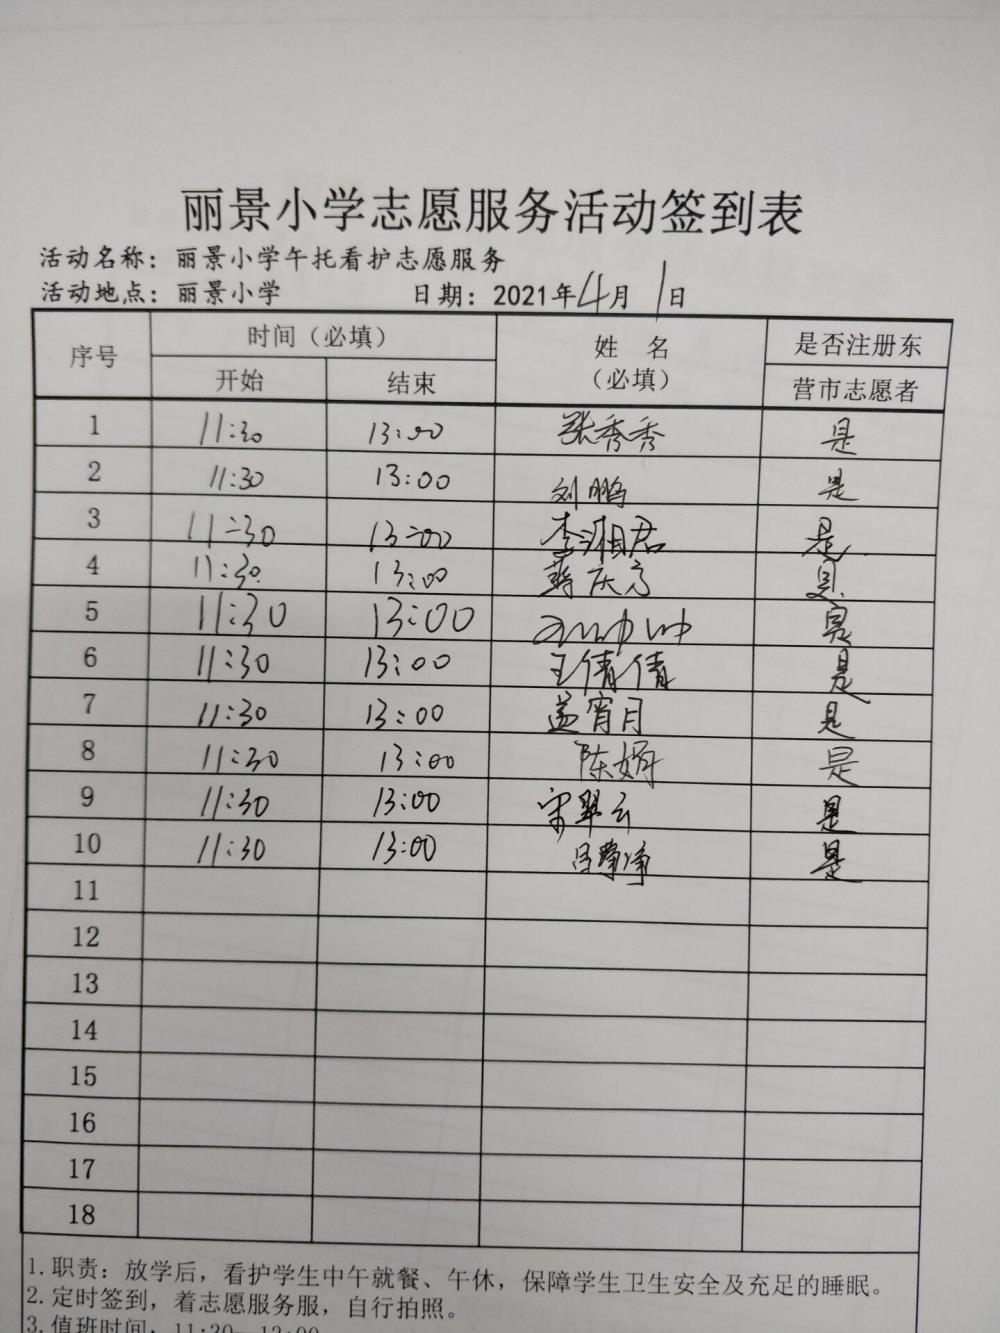 丽景小学志愿服务活动签到表
活动名称：丽景小学午托看护志愿服务
活动地点：丽景小学 日期：2021年4月1日
序号 时间（必填） 姓 名 （必填） 是否注册东营市志愿者
开始 结束
1 11:30 13:00 张秀秀 是
2 11:30 13:00 刘鹏 是
3 11:30 13:00 李湘君 是
4 11:30 13:00 蒋庆 是
5 11:30 13:00 是
6 11:30 13:00 王倩倩 是
7 11:30 13:00 盖宵月 是
8 11:30 13:00 陈娟 是
9 11:30 13:00 宋翠云 是
10 11:30 13:00 吕 是
11
12
13
14
15
16
17
18
1.职责：放学后，看护学生中午就餐、午休，保障学生卫生安全及充足的睡眠。
2.定时签到，着志愿服务服，自行拍照。
3.值班时间：11:30—13:00